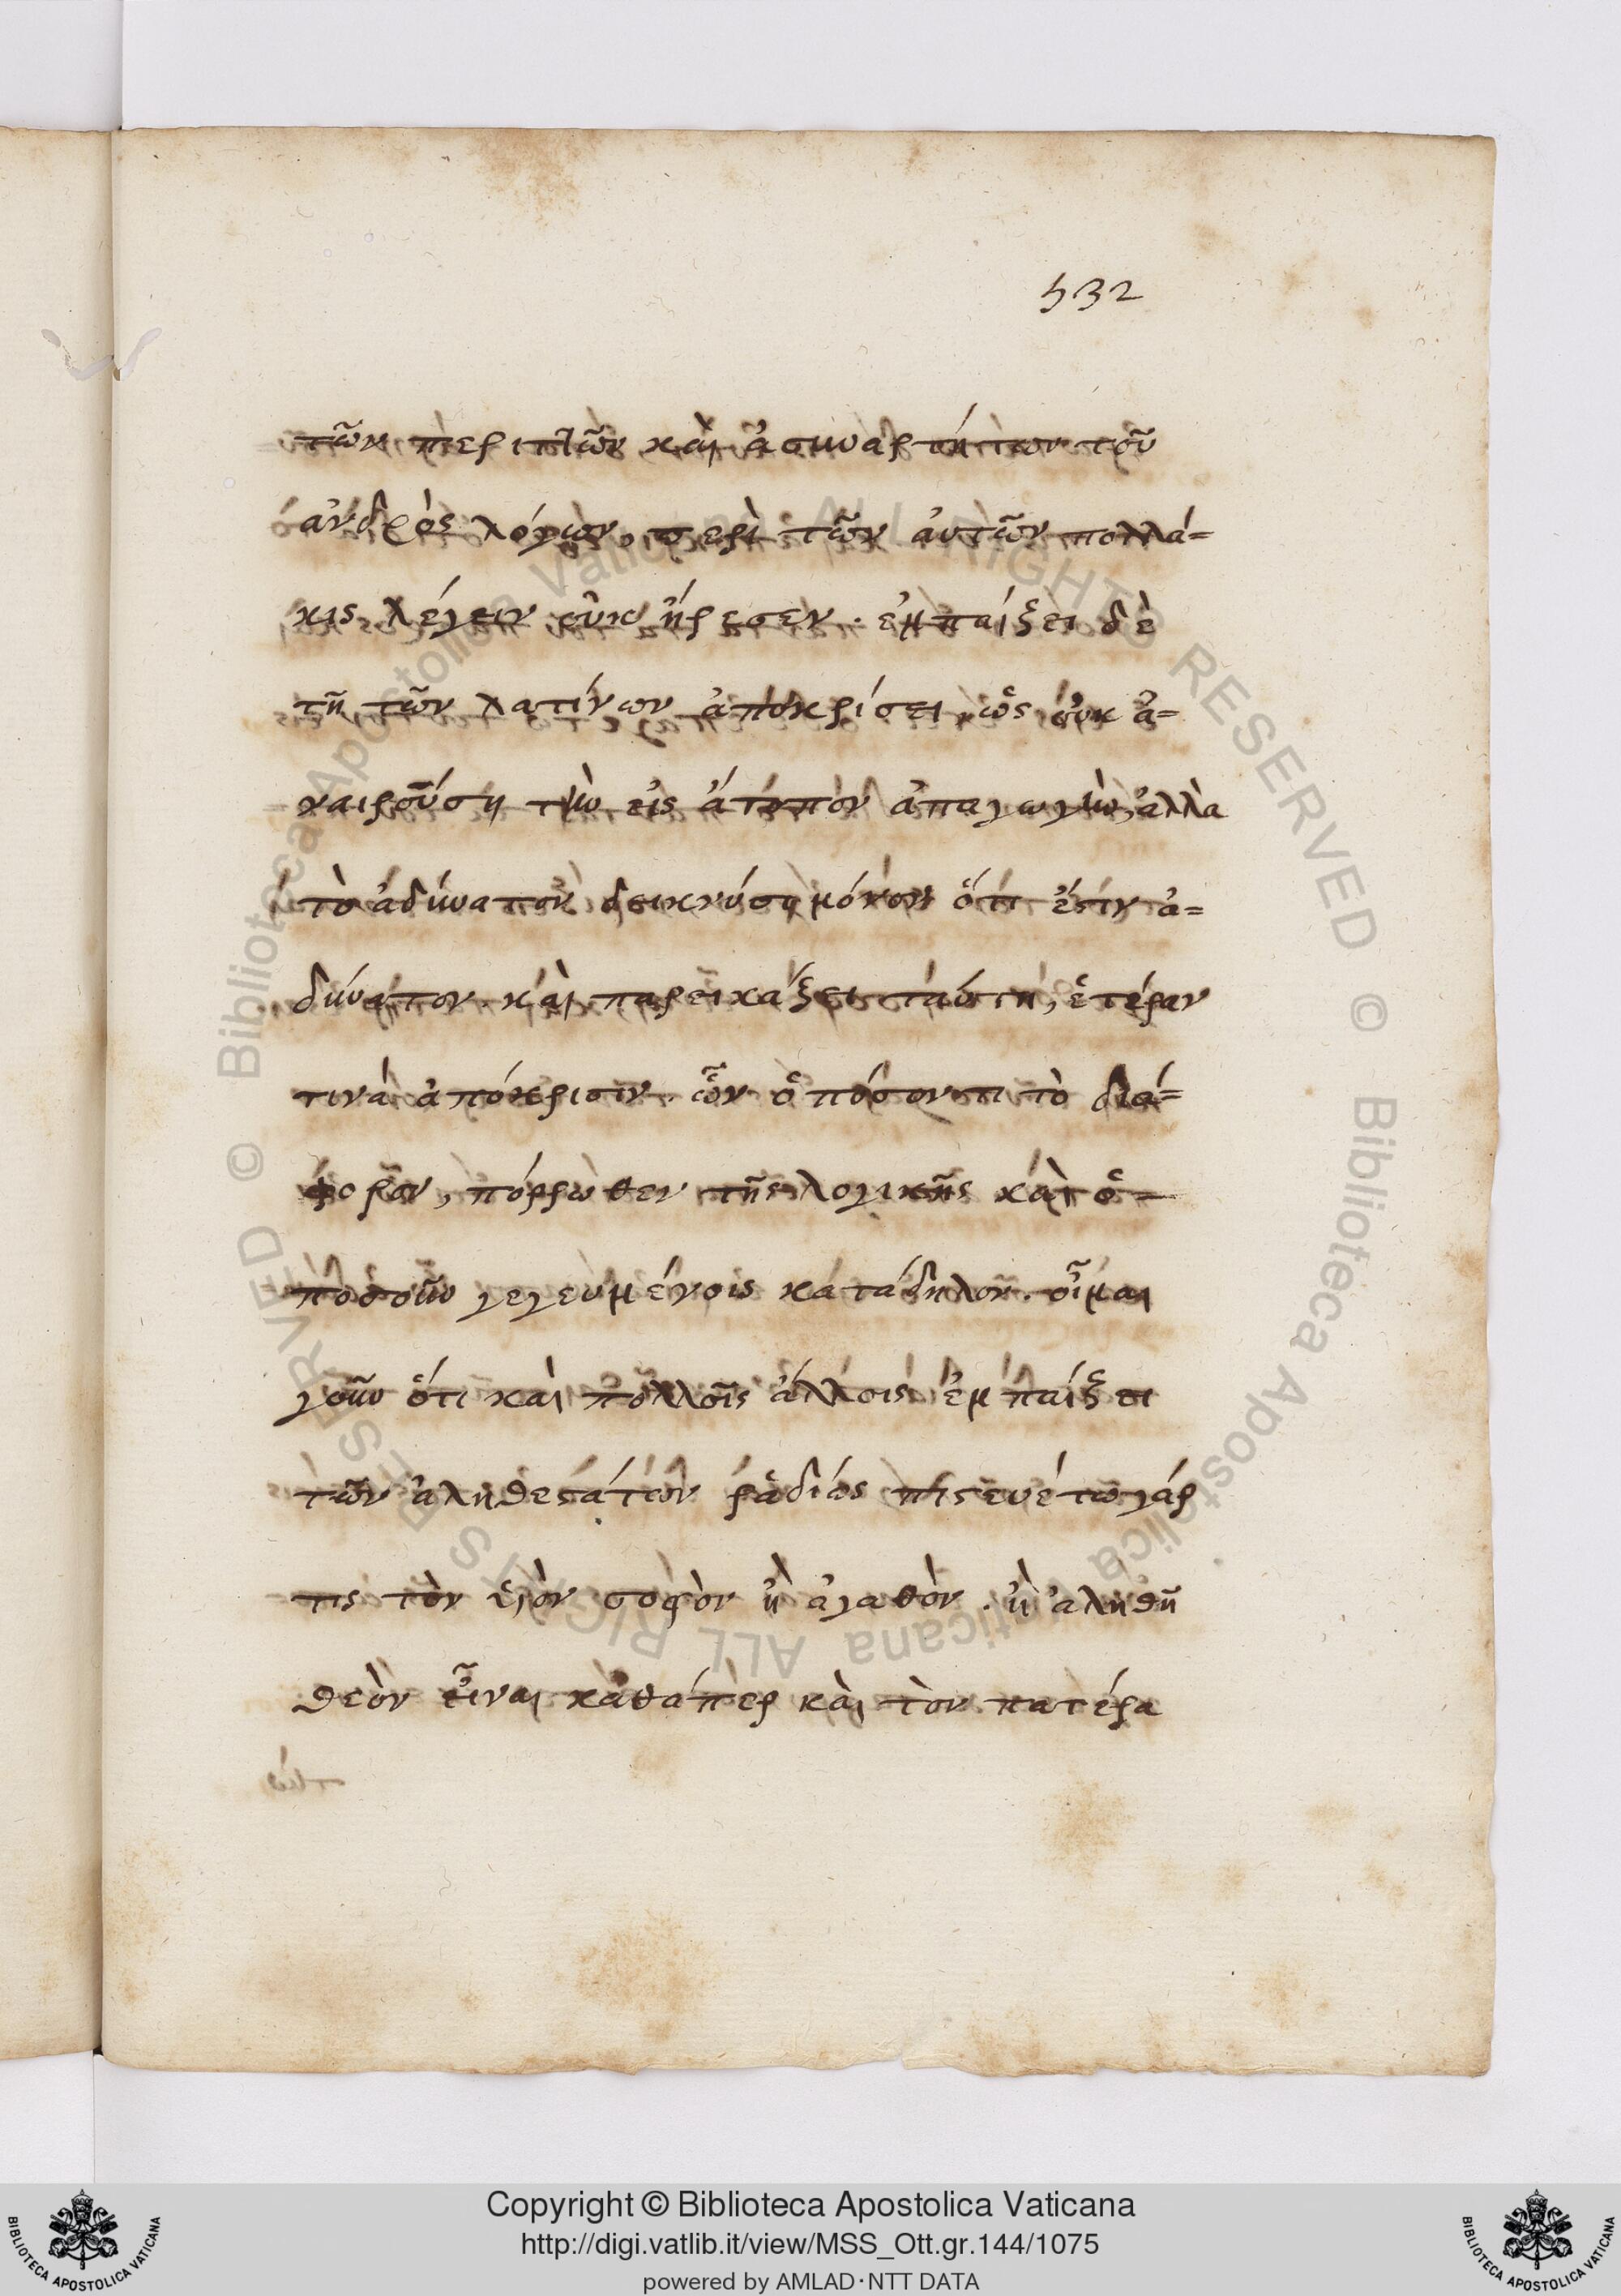 532
τῶν περιττῶν καὶ ἀσυναρτήτων τοῦ
ἀνδρὸς λόγων, περὶ τῶν αὐτῶν πολλά=
κις λέγειν οὐκ ἤρεσεν. ἐμπαίξει δὲ
τῇ τῶν λατίνων ἀποκρίσει, ὡς οὐκ ἀ=
ναιρούσῃ τὴν εἰς ἄτοπον ἀπαγωγὴν, ἀλλὰ
τὸ ἀδύνατον δεικνύσῃ μόνον ὅτι ἐστὶν ἀ=
δύνατον. καὶ παρεικάξει ταύτῃ, ἑτέραν
τινὰ ἀπόκρισιν. ὧν ὁπόσον τι τὸ διά=
φορον, πόρρωθεν τῆς λογικῆς καὶ ὁ=
ποσοῦν γεγευμένοις κατάδηλον. οἶμαι
γοῦν ὅτι καὶ πολλοῖς ἄλλοις ἐμπαίξει
τῶν ἀληθεστάτων ῥᾳδίως πιστευέτω γάρ
τις τὸν υἱὸν σοφὸν ἢ ἀγαθὸν. ἢ ἀληθῆ
θεὸν εἶναι καθάπερ καὶ τὸν πατέρα
© Biblioteca Apostolica Vaticana ALL RIGHTS RESERVED
© Biblioteca Apostolica Vaticana ALL RIGHTS RESERVED
Copyright © Biblioteca Apostolica Vaticana
http://digi.vatlib.it/view/MSS_Ott.gr.144/1075
powered by AMLAD·NTT DATA
BIBLIOTECA APOSTOLICA VATICANA
BIBLIOTECA APOSTOLICA VATICANA